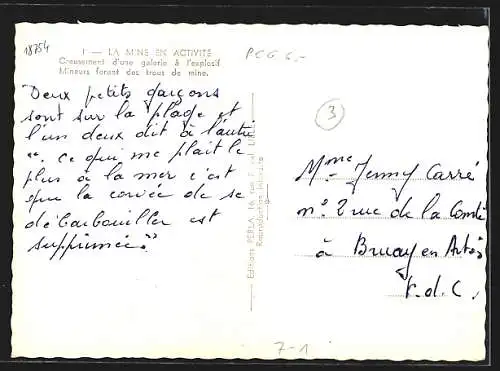 18754
1 — LA MINE EN ACTIVITÉ
Creusement d'une galerie à l'explosif
Mineurs forant des trous de mine.
PCG 6.-
Deux petits garçons
sont sur la plage et
l'un deux dit à l'autre
". Ce qui me plait le
plus à la mer c'est
que la corvée de se
débarbouiller est
supprimée"
Editions PERLA,
Reproduction interdite
3
Mme Jenny Carré
n° 2 rue de la Comté
à Bruay en Artois
P.d.C.
7-1